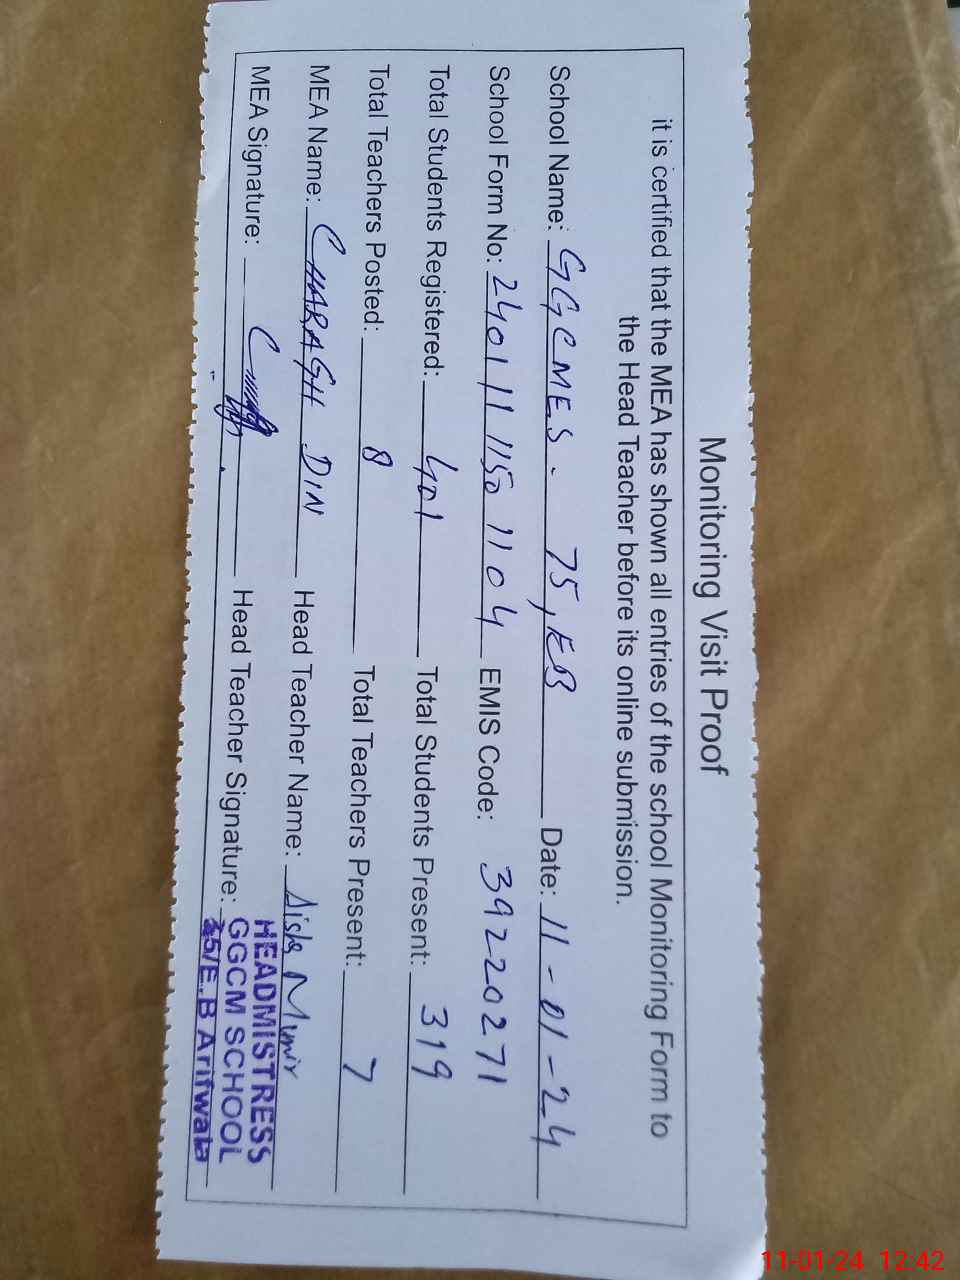 Monitoring Visit Proof
it is certified that the MEA has shown all entries of the school Monitoring Form to
the Head Teacher before its online submission.
School Name: GGCMES. 75,EB Date: 11-01-24
School Form No: 2401111501104 EMIS Code: 39220271
Total Students Registered: 401 Total Students Present: 319
Total Teachers Posted: 8 Total Teachers Present: 7
MEA Name: CHARAGH DIN Head Teacher Name: Aisha Munir
MEA Signature: Head Teacher Signature:
HEADMISTRESS
GGCM SCHOOL
75/E.B Arifwala
11-01-24 12:42